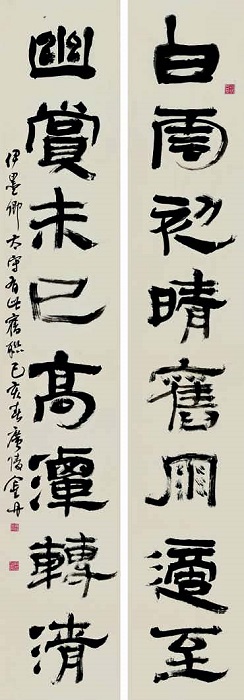 白雲初晴舊雨適至
幽賞未已高譚轉清
伊墨卿太守有此舊聯己亥春廣陵金丹